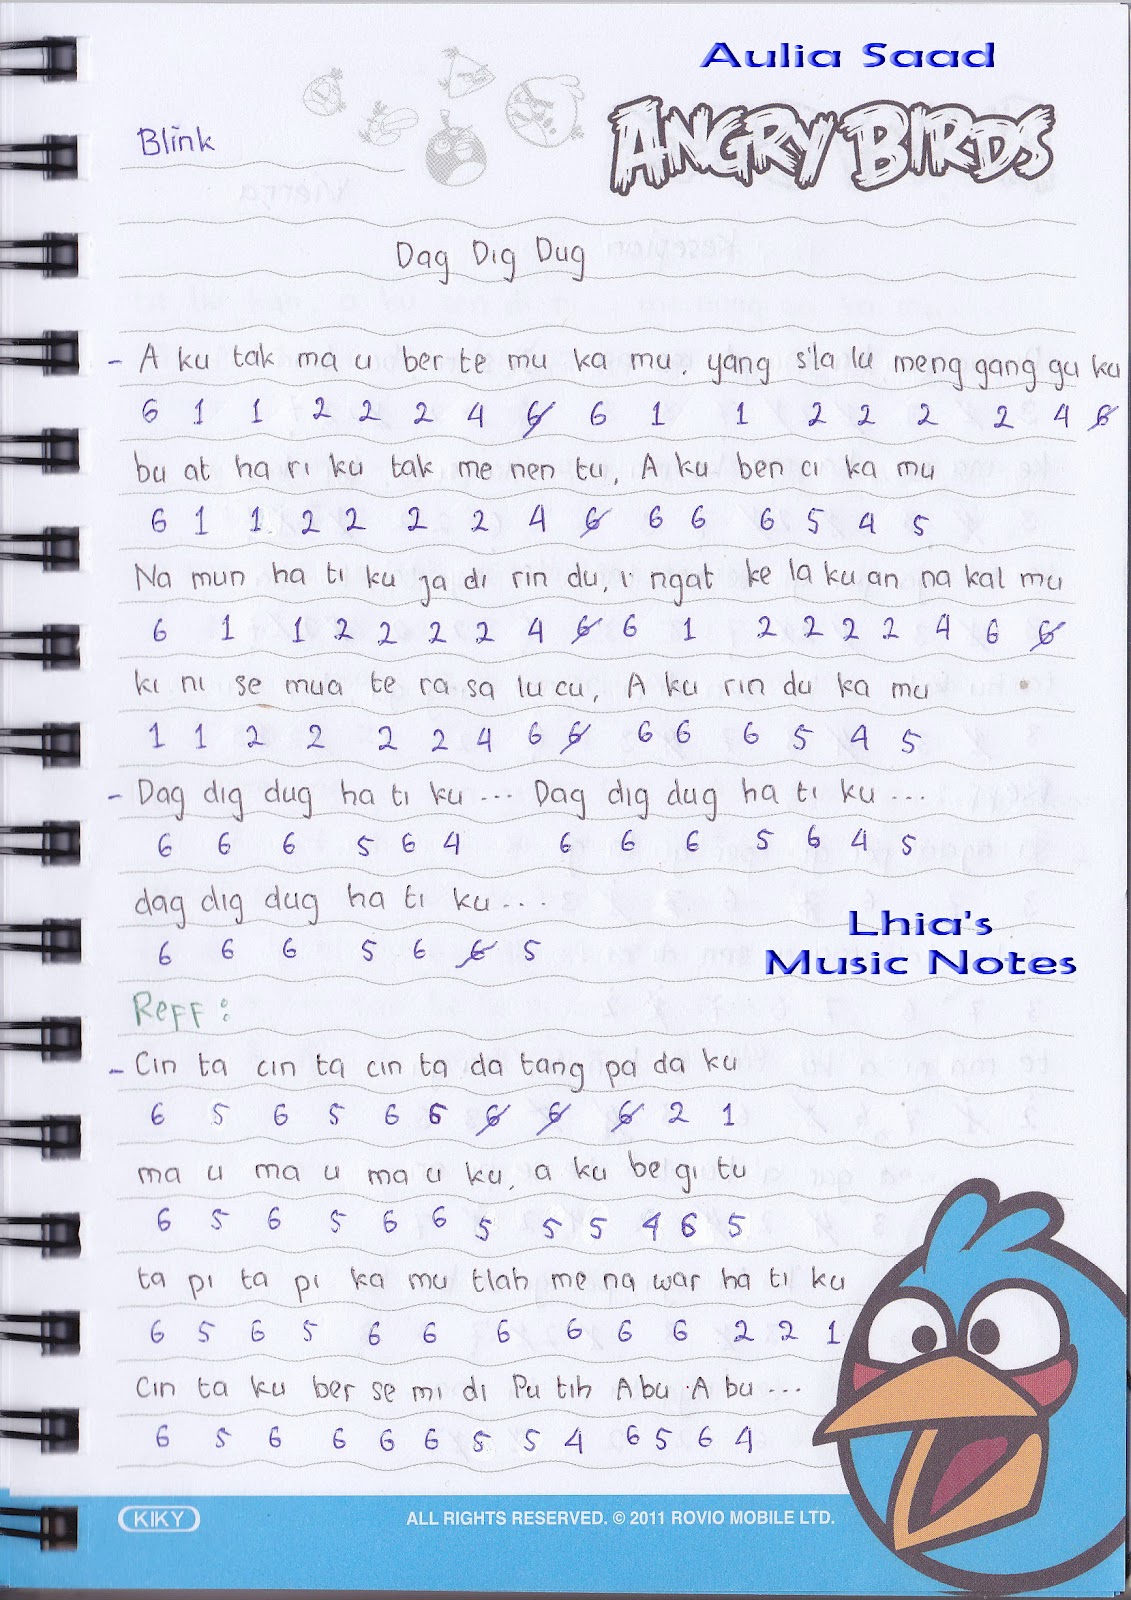 Aulia Saad
ANGRY BIRDS
Blink
Dag Dig Dug
- A ku tak ma u ber te mu ka mu, yang s'la lu meng gang gu ku
6 1 1 2 2 2 4 6̸ 6 1 1 2 2 2 2 4 6̸
bu at ha ri ku tak me nen tu, A ku ben ci ka mu
6 1 1 2 2 2 2 4 6̸ 6 6 6 5 4 5
Na mun ha ti ku ja di rin du, i ngat ke la ku an na kal mu
6 1 1 2 2 2 2 4 6̸ 6 1 2 2 2 2 4 6 6̸
ki ni se mua te ra sa lu cu, A ku rin du ka mu
1 1 2 2 2 2 4 6 6̸ 6 6 6 5 4 5
- Dag dig dug ha ti ku ... Dag dig dug ha ti ku ...
6 6 6 5 6 4 6 6 6 5 6 4 5
dag dig dug ha ti ku ...
6 6 6 5 6 6̸ 5
Lhia's
Music Notes
Reff :
- Cin ta cin ta cin ta da tang pa da ku
6 5 6 5 6 6 6̸ 6̸ 6̸ 2 1
ma u ma u ma u ku, a ku be gi tu
6 5 6 5 6 6 5 5 5 4 6 5
ta pi ta pi ka mu tlah me na war ha ti ku
6 5 6 5 6 6 6 6 6 6 2 2 1
Cin ta ku ber se mi di Pu tih A bu - A bu ...
6 5 6 6 6 6 5 5 4 6 5 6 4
KIKY
ALL RIGHTS RESERVED. © 2011 ROVIO MOBILE LTD.